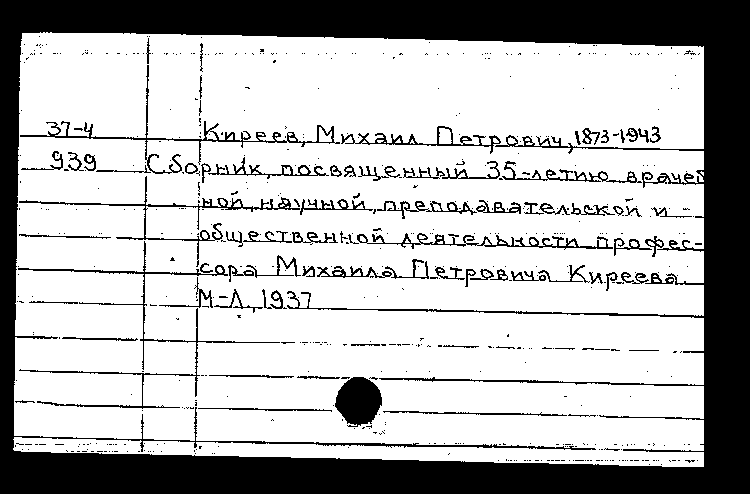 37-4 Киреев, Михаил Петрович, 1873-1943
939 Сборник, посвященный 35-летию врачеб
ной, научной, преподавательской и -
общественной деятельности профес-
сора Михаила Петровича Киреева.
М-Л., 1937